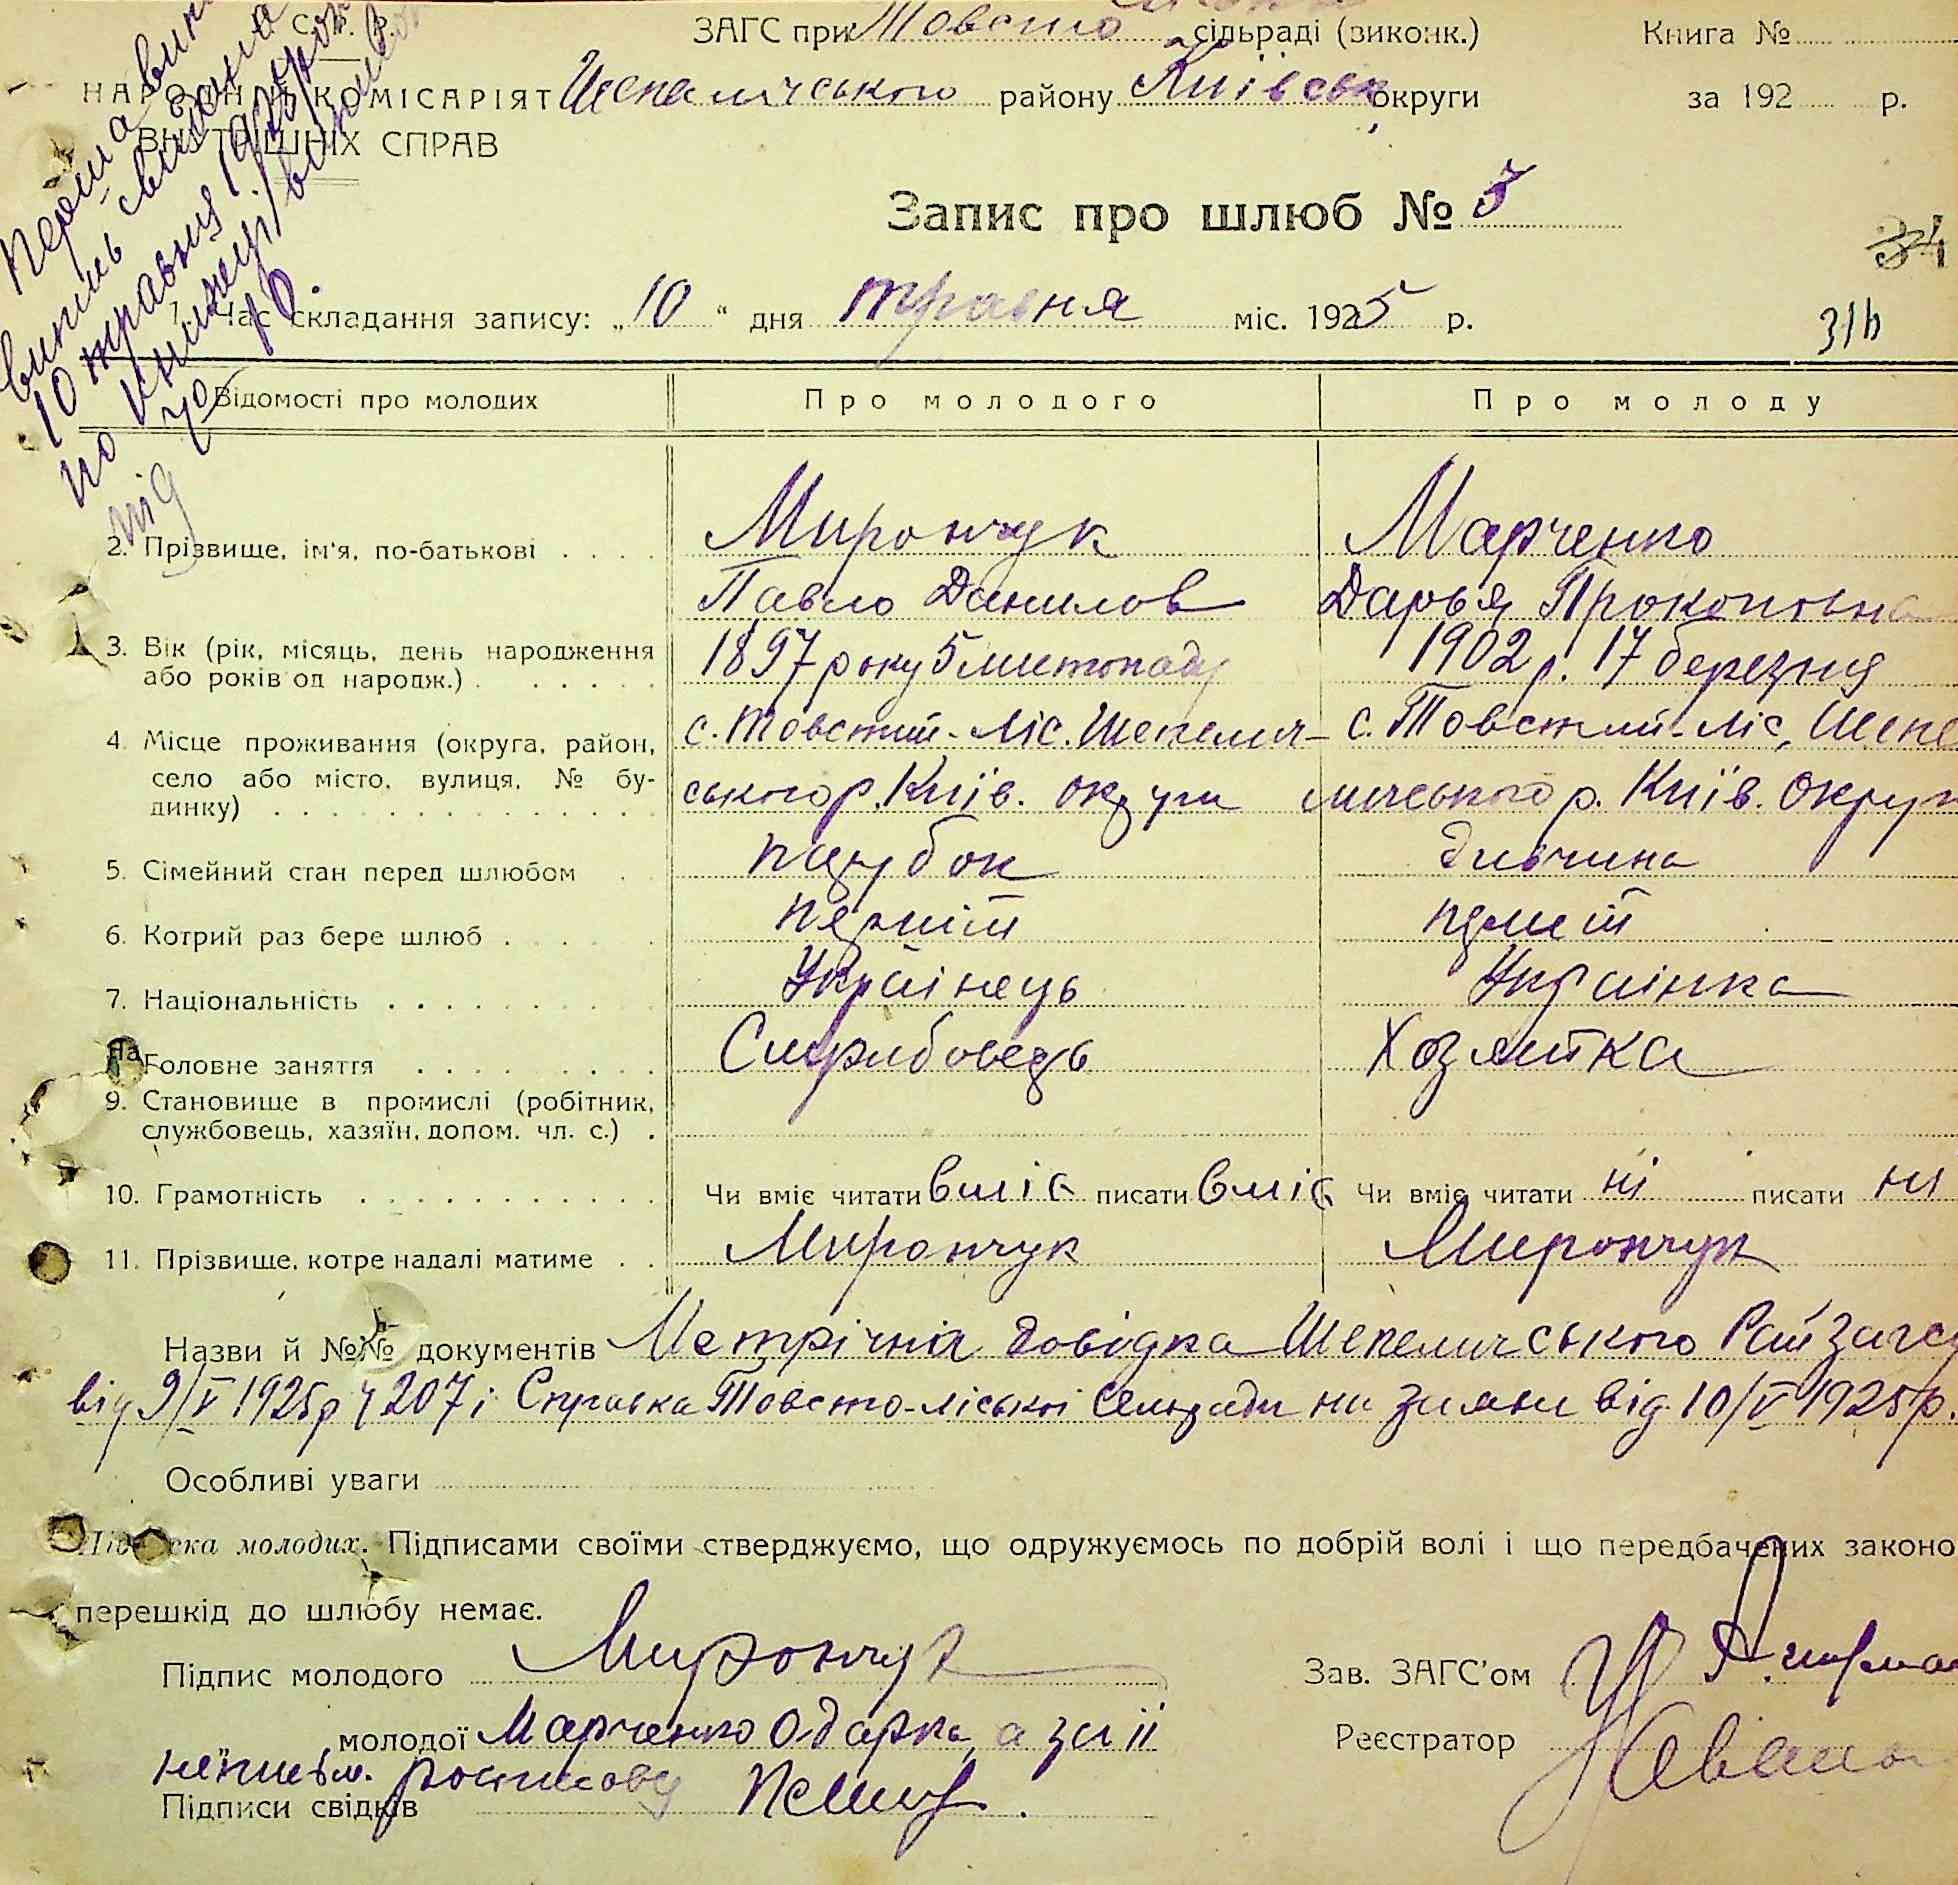 С. Р. Р.
ЗАГС при Товсто сільраді (виконк.) Книга №
НАРОДНІЙ КОМІСАРІЯТ Шепеличського району Київськ округи за 192 р.
ВНУТРІШНІХ СПРАВ
Запис про шлюб №
34
1. Час складання запису: „10“ дня травня міс. 1925 р.
Перша
випись
10 травня 1925
по книжец
під 70 р.
Відомості про молодих Про молодого Про молоду
2. Прізвище, ім'я, по-батькові Мирончук Марченко
Павло Данилов Дарья Прокоповна
3. Вік (рік, місяць, день народження 1897 року 5 листопаду 1902 р. 17 березня
або років од народж.)
4. Місце проживання (округа, район, с. Товстий-Ліс. Шепелич- с. Товстий-Ліс, Шепе
село або місто, вулиця, № бу- ського р. Київ. округи личського р. Київ. Округи
динку)
5. Сімейний стан перед шлюбом парубок дивчина
6. Котрий раз бере шлюб перший
7. Національність Українець Українка
Головне заняття Хозяйка
9. Становище в промислі (робітник,
службовець, хазяїн, допом. чл. с.)
10. Грамотність Чи вміє читати вміє писати вміє Чи вміє читати ні писати ни
11. Прізвище, котре надалі матиме Мирончук Мирончук
Назви й №№ документів Метрічна довідка Шепеличського Райзагсу
від 9/V 1925р ч 207 і Справка Товсто-ліської Сельради від 10/V 1925 р.
Особливі уваги
Підписка молодих. Підписами своїми стверджуємо, що одружуємось по добрій волі і що передбачених законо
перешкід до шлюбу немає.
Підпис молодого Мирончук Зав. ЗАГС'ом
молодої Марченко Одарка, а за її Реєстратор
неписьм. росписавс
Підписи свідків